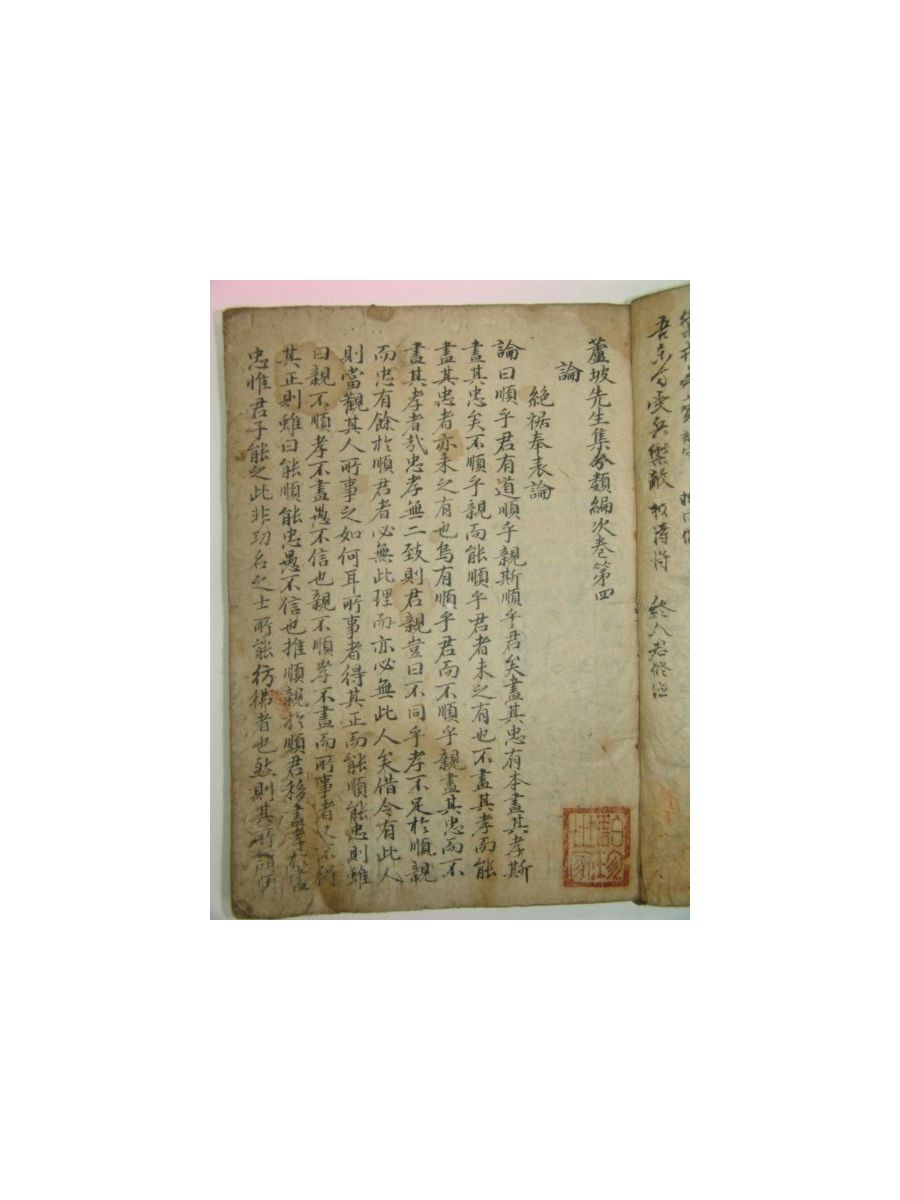 吾東方受兵禦敵
蘆坡先生集分類編次卷第四
論
絶裾奉表論
論曰順乎君有道順乎親斯順乎君矣盡其忠有本盡其孝斯
盡其忠矣不順乎親而能順乎君者未之有也不盡其孝而能
盡其忠者亦未之有也烏有順乎君而不順乎親盡其忠而不
盡其孝者哉忠孝無二致則君親豈曰不同乎孝不足於順親
而忠有餘於順君者必無此理而亦必無此人矣借令有此人
則當觀其人所事之如何耳所事者得其正而能順能忠則雖
曰親不順孝不盡愚不信也親不順孝不盡而所事者又不得
其正則雖曰能順能忠愚不信也推順親於順君移盡孝於盡
忠惟君子能之此非功名之士所能彷彿者也然則其所